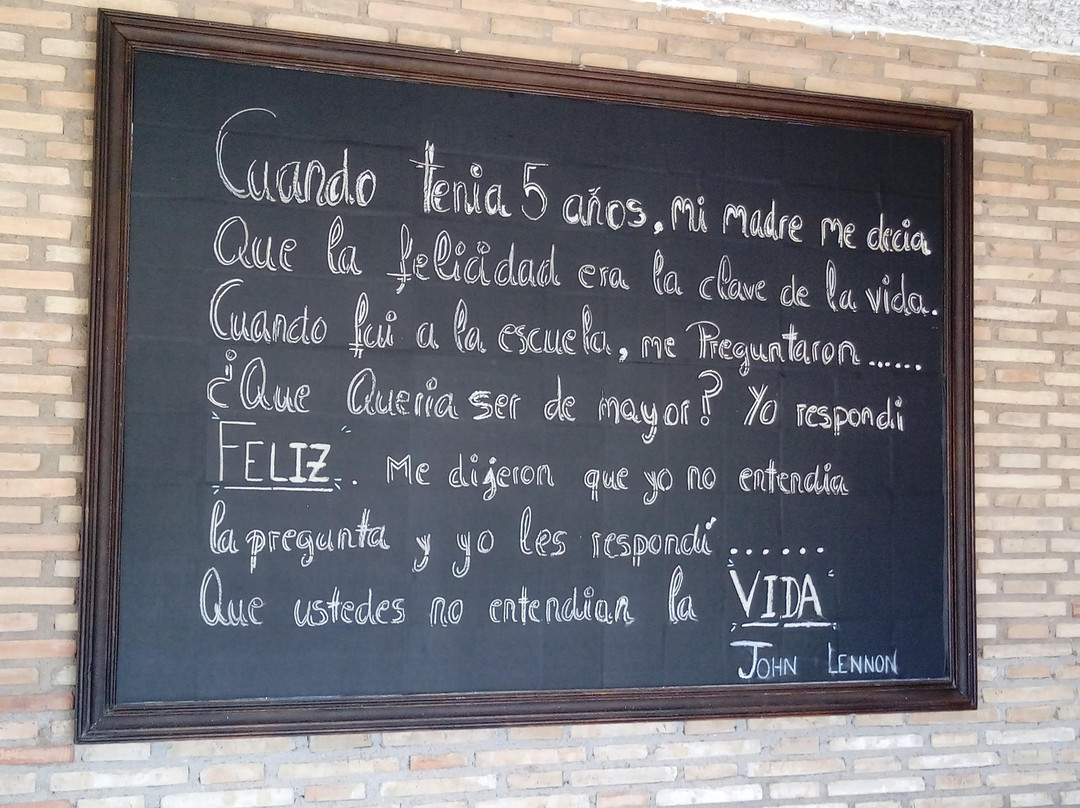 Cuando tenia 5 años, mi madre me decia
Que la felicidad era la clave de la vida.
Cuando fui a la escuela, me Preguntaron......
¿Que Queria ser de mayor? Yo respondi
"FELIZ". Me dijeron que yo no entendia
la pregunta y yo les respondí......
Que ustedes no entendian la "VIDA"
JOHN LENNON